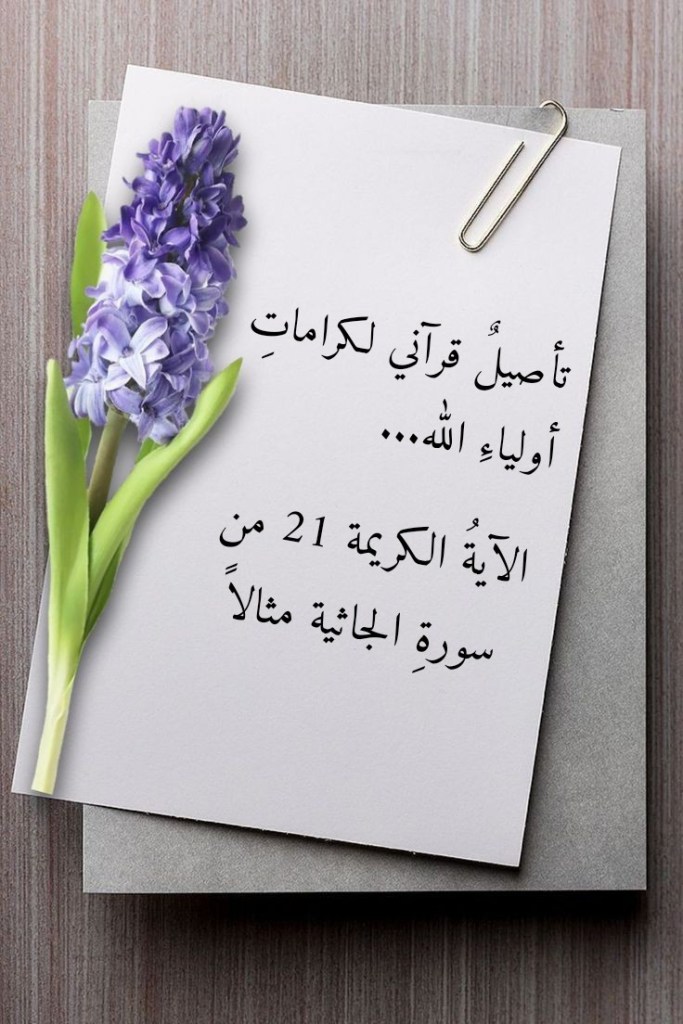 تأصيلٌ قرآني لكراماتِ
أولياءِ الله...
الآيةُ الكريمة 21 من
سورةِ الجاثية مثالاً